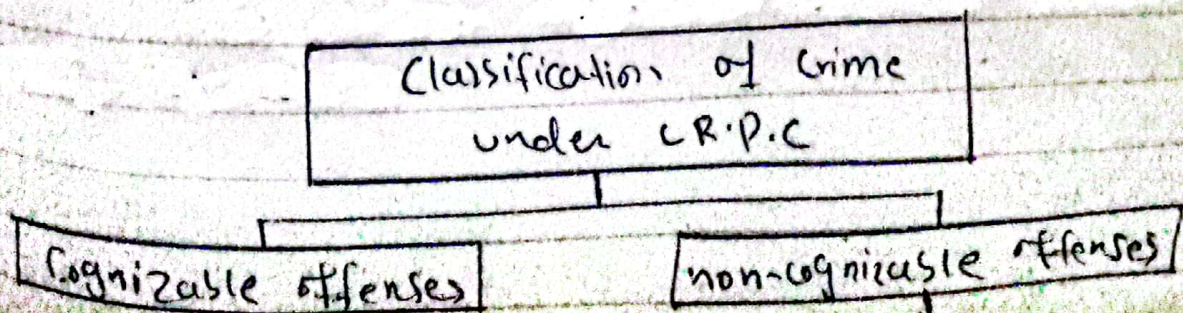 Classification of Crime
under CR.P.C
Cognizable offenses
non-cognizable offenses